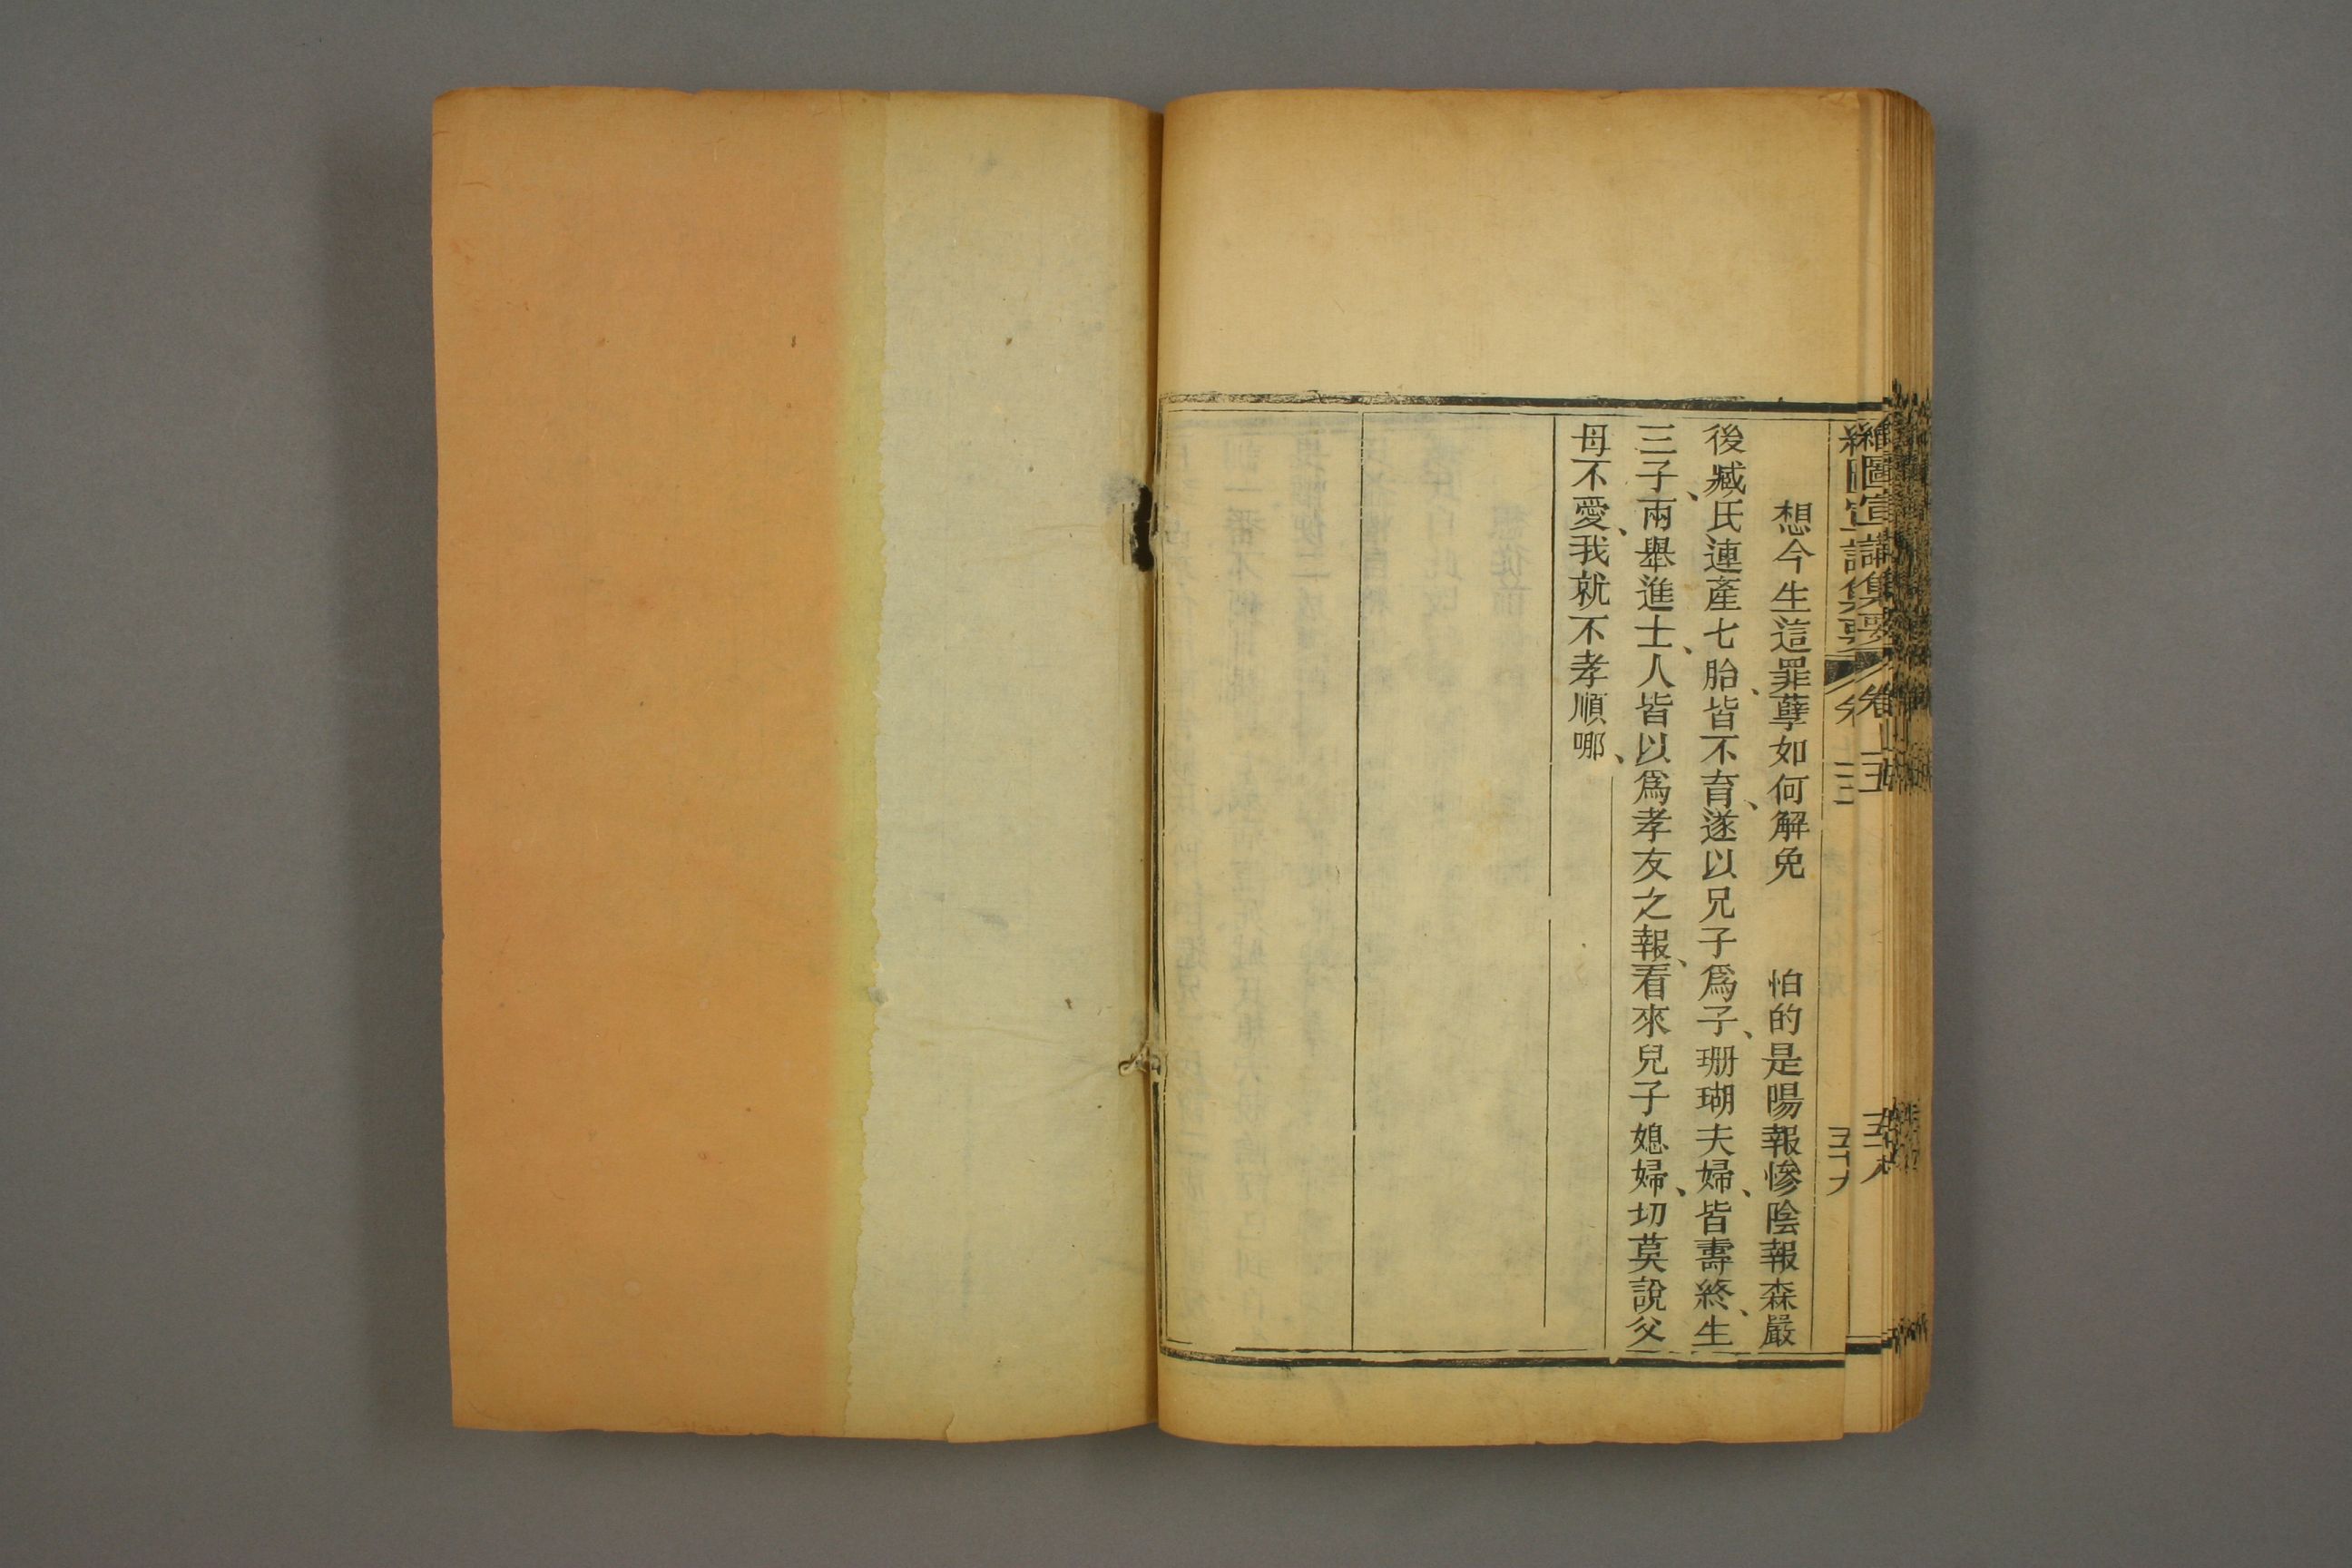 繪圖宣講集要
卷五
五十八
想今生這罪孽如何解免　怕的是陽報慘陰報森嚴
後臧氏連產七胎、皆不育、遂以兄子爲子、珊瑚夫婦、皆壽終、生
三子、兩舉進士、人皆以爲孝友之報、看來兒子媳婦、切莫說父
母不愛、我就不孝順哪、